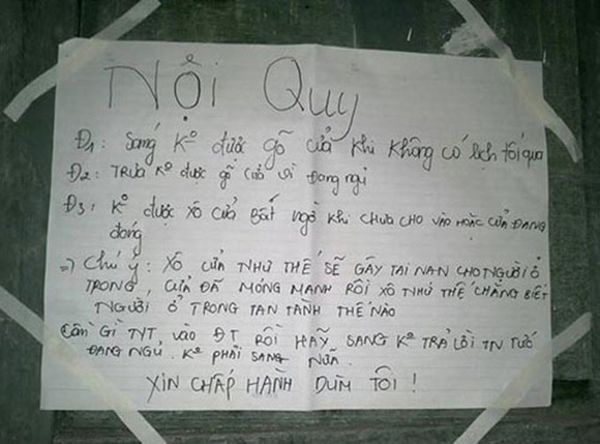 NỘI QUY
Đ1: Sáng Kº được gõ cửa khi không có lịch tối qua
Đ2: TRƯA Kº được gõ cửa vì đang ngủ
Đ3: Kº được xô cửa bất ngờ khi chưa cho vào hoặc cửa đang
đóng
=> Chú ý: XÔ CỬA NHƯ THẾ SẼ GÂY TAI NẠN CHO NGƯỜI Ở
TRONG, CỬA ĐÃ MỎNG MANH RỒI XÔ NHƯ THẾ CHẲNG BIẾT
NGƯỜI Ở TRONG TAN TÀNH THẾ NÀO
Cần GÌ TYT VÀO ĐT RỒI HÃY SANG Kº TRẢ LỜI TN TỨC
ĐANG NGỦ. Kº PHẢI SANG NỮA.
XIN CHẤP HÀNH DÙM TÔI!